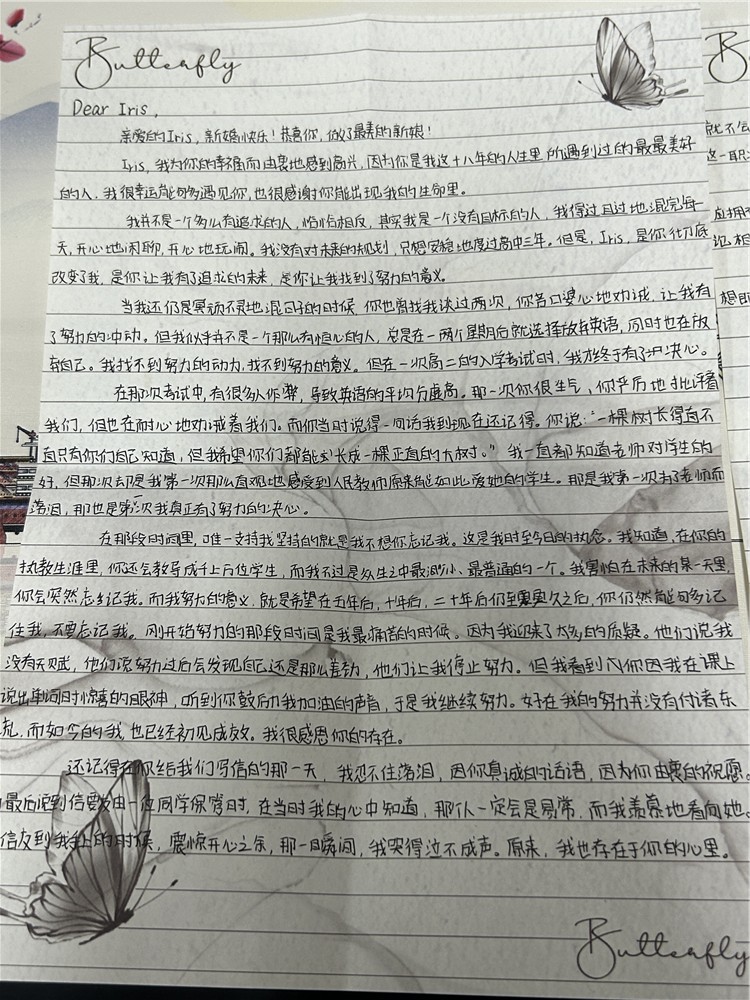 Butterfly
Dear Iris,
亲爱的Iris，新婚快乐！恭喜你，做了最美的新娘！
Iris，我为你的幸福而由衷地感到高兴，因为你是我这十八年的人生里所遇到过的最最美好
的人，我很幸运能够多遇见你，也很感谢你能出现我的生命里。
我并不是一个多么有追求的人，恰恰相反，其实我是一个没有目标的人，我得过且过地混完每一
天，开心地闲聊，开心地玩闹。我没有对未来的规划，只想安稳地度过高中三年。但是，Iris，是你彻底
改变了我，是你让我有了追求的未来，是你让我找到了努力的意义。
当我还仍是冥顽不灵地混日子的时候，你也曾找我谈过两次，你苦口婆心地劝诫，让我有
了努力的冲动。但我似乎并不是一个那么有恒心的人，总是在一两个星期后就选择放弃英语，同时也在放
弃自己。我找不到努力的动力，找不到努力的意义。但在一次高二的入学考试时，我才终于有了决心。
在那次考试中，有很多人作弊，导致英语的平均分虚高。那一次你很生气，你严厉地批评着
我们，但也在耐心地劝诫着我们。而你当时说得一句话我到现在还记得。你说：“一棵树长得直不
直只有你们自己知道，但我希望你们都能长成一棵正直的大树。”我一直都知道老师对学生的
好，但那次却是我第一次那么直观地感受到人民教师原来能如此爱她的学生。那是我第一次为了老师而
落泪，那也是第一次我真正有了努力的决心。
在那段时间里，唯一支持我坚持的就是我不想你忘记我。这是我时至今日的执念。我知道，在你的
执教生涯里，你还会教导成千上万位学生，而我不过是众生之中最渺小、最普通的一个。我害怕在未来的某一天里，
你会突然忘记我。而我努力的意义，就是希望在五年后，十年后，二十年后仍至更久之后，你仍然能够多记
住我，不要忘记我。刚开始努力的那段时间是我最痛苦的时候。因为我迎来了太多的质疑。他们说我
没有天赋，他们说努力过后会发现自己还是那么差劲，他们让我停止努力。但我看到你因我在课上
说出单词时惊喜的眼神，听到你鼓励我加油的声音，于是我继续努力。好在我的努力并没有付诸东
流，而如今的我，也已经初见成效。我很感恩你的存在。
还记得在你给我们写信的那一天，我忍不住落泪，因你真诚的话语，因为你由衷的祝愿。
最后得到信要由一位同学保管时，在当时我的心中知道，那个一定会是易常，而我羡慕地看向她。
信发到我手上的时候，震惊开心之余，那一瞬间，我哭得泣不成声。原来，我也存在于你的心里。
Butterfly